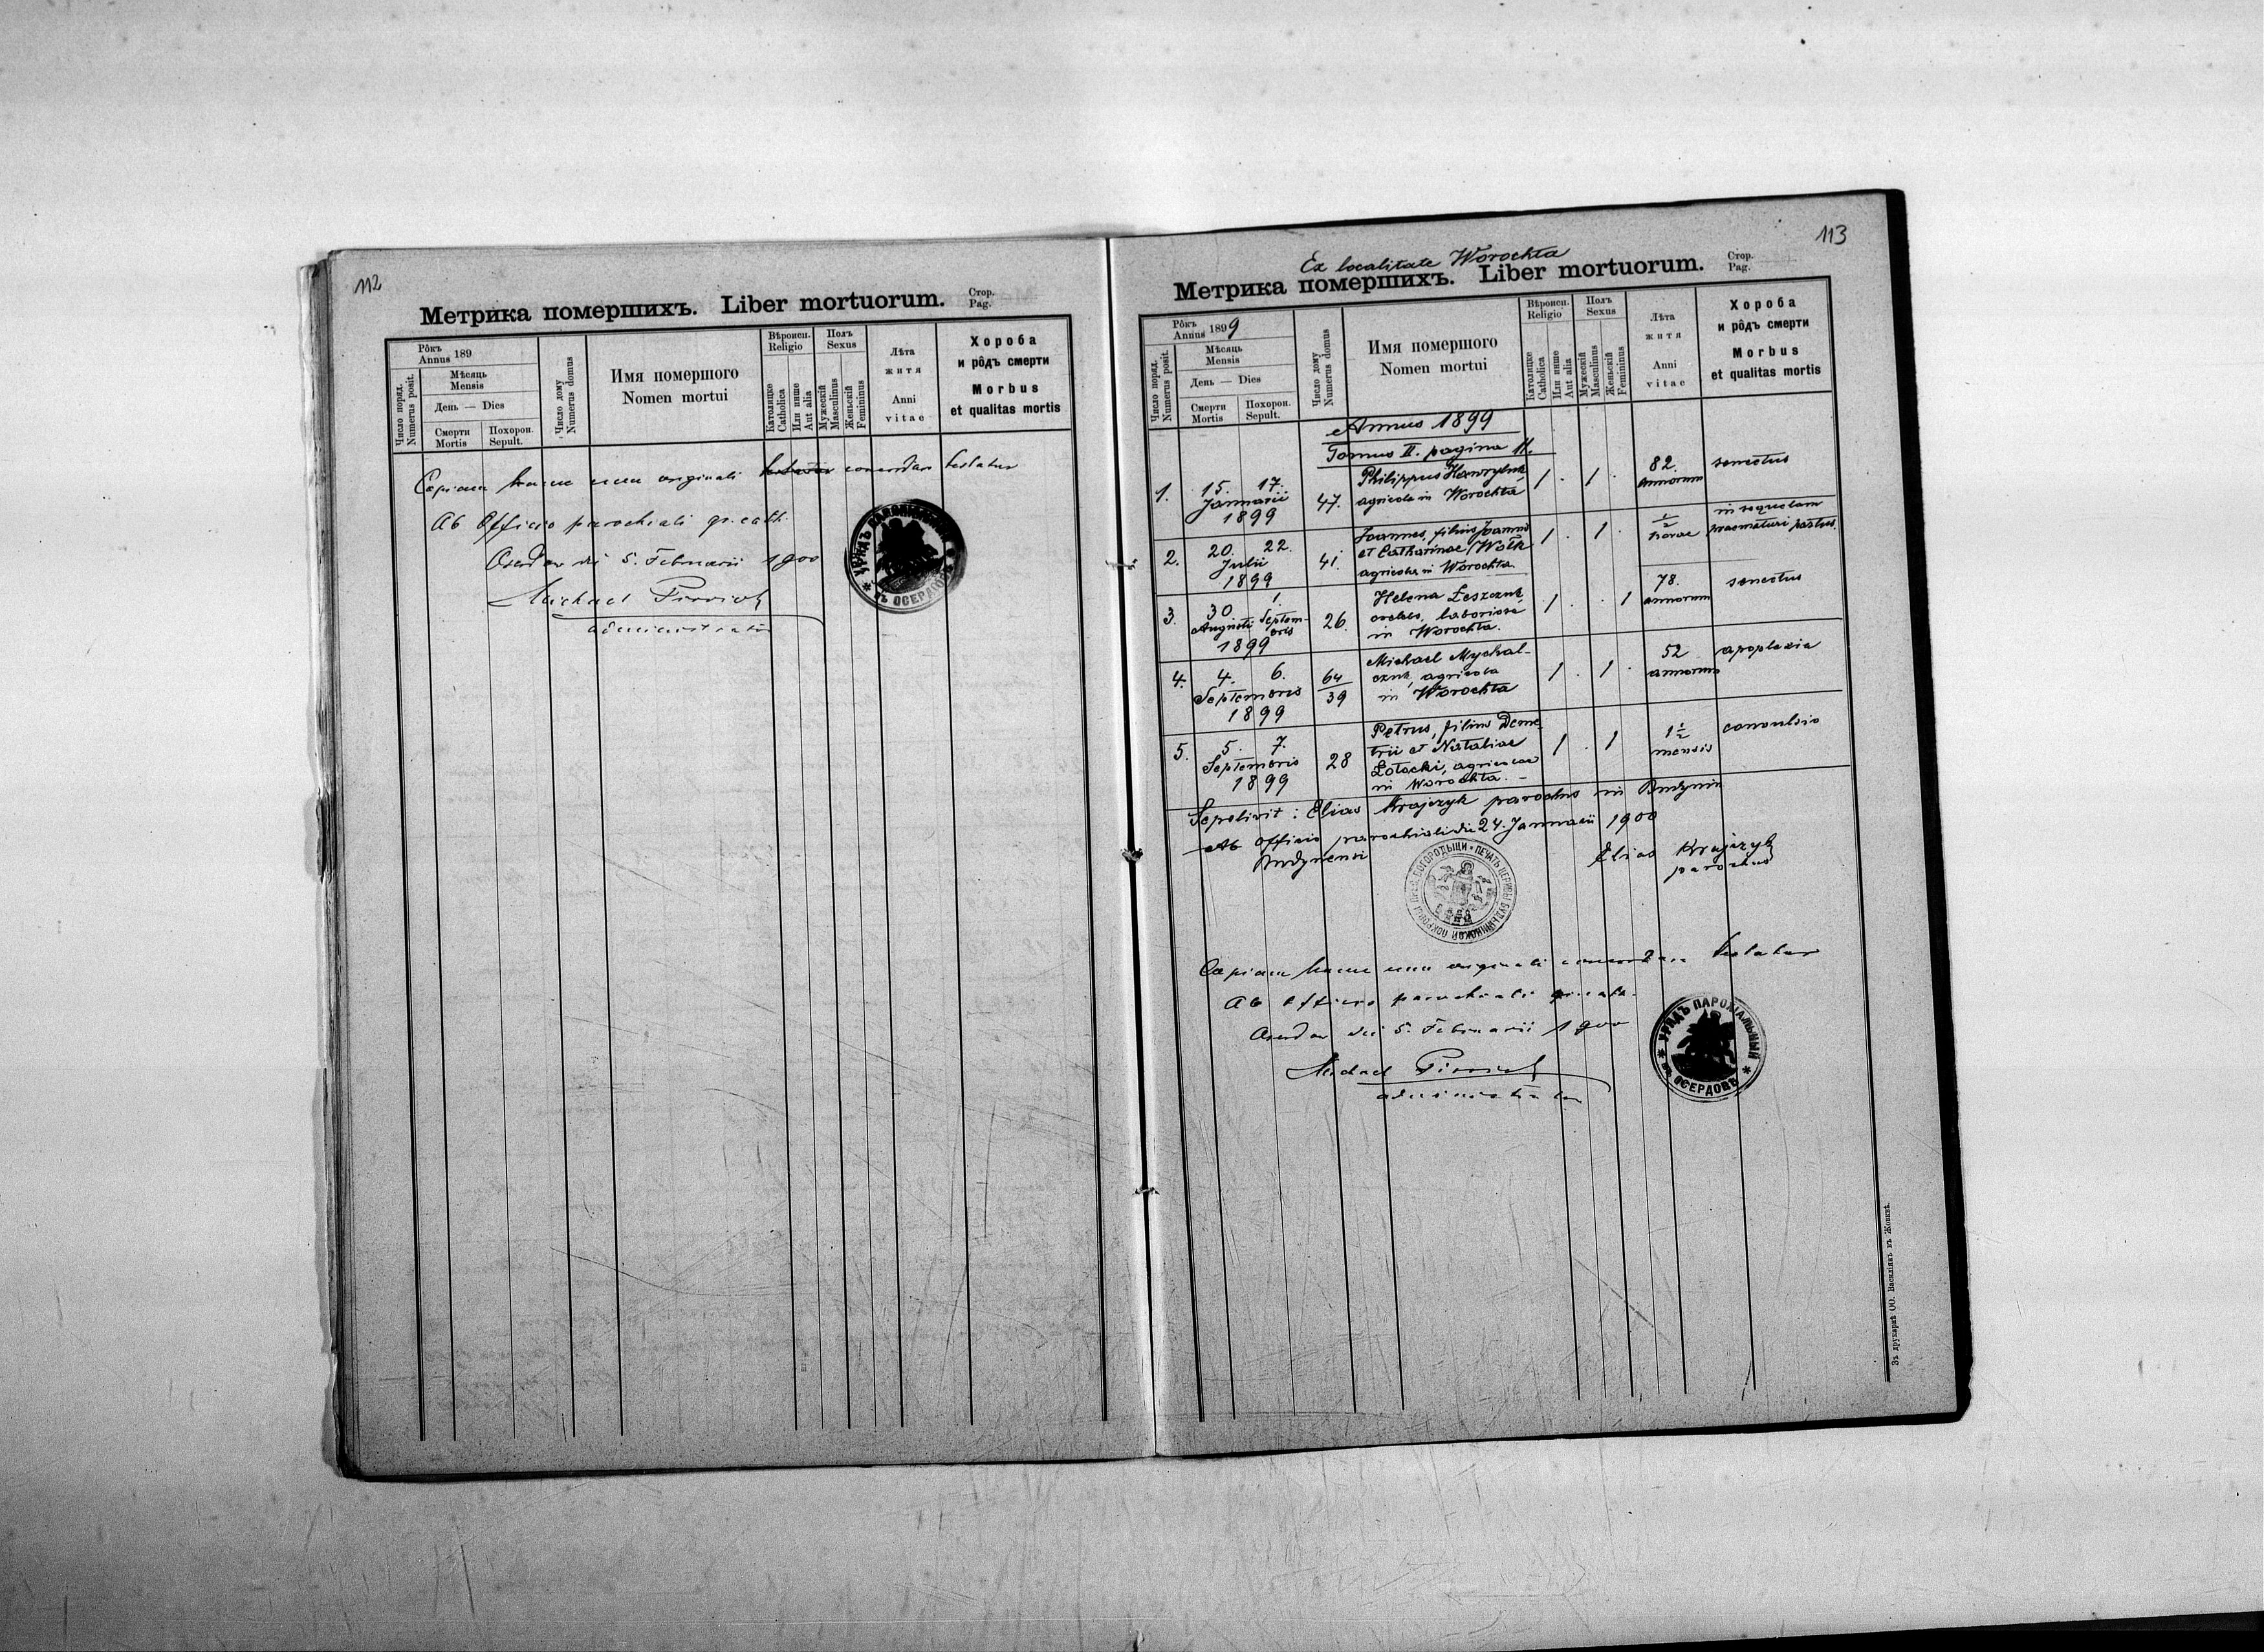 112
Метрика помершихъ. Liber mortuorum.
Стор.
Pag.
Число поряд.
Numerus posit.
Рôкъ
Annus 189
Мѣсяць
Mensis
День — Dies
Смерти
Mortis
Похорон.
Sepult.
Число дому
Numerus domus
Имя помершого
Nomen mortui
Вѣроисп.
Religio
Католицке
Catholica
Или инше
Aut alia
Полъ
Sexus
Мужескій
Masculinus
Женьскій
Femininus
Лѣта
житя
Anni
vitae
Хороба
и рôдъ смерти
Morbus
et qualitas mortis
Copiam hanc cum originali concordare testatur
Ab Officio parochiali gr. cath.
5. Februarii 1900
Michael
administrator
УРЯДЪ ПАРОХІАЛЬНЫЙ
въ ОСЕРДОВѢ
113
Ex localitate Worochta
Метрика помершихъ. Liber mortuorum.
Стор.
Pag.
Число поряд.
Numerus posit.
Рôкъ
Annus 1899
Мѣсяць
Mensis
День — Dies
Смерти
Mortis
Похорон.
Sepult.
Число дому
Numerus domus
Имя помершого
Nomen mortui
Вѣроисп.
Religio
Католицке
Catholica
Или инше
Aut alia
Полъ
Sexus
Мужескій
Masculinus
Женьскій
Femininus
Лѣта
житя
Anni
vitae
Хороба
и рôдъ смерти
Morbus
et qualitas mortis
Annus 1899
Tomus II. pagina 11.
1. 15. 17. Januarii 1899 47. Philippus Hawryluk, 1 . 1 . 82. annorum senectus
agricola in Worochta
2. 20. 22. Julii 1899 41. Joannes, filius Joannis 1 . 1 . 1/2 horae in sequelam praematuri partus.
et Catharinae Wołk
agricolae in Worochta.
3. 30. Augusti 1. Septembris 1899 26. Helena Leszczuk, 1 . . 1 78. annorum senectus
laboriosa
in Worochta.
4. 4. 6. Septembris 1899 64/39 Michael Mychal- 1 . 1 . 52 annorum apoplexia
czuk, agricola
in Worochta
5. 5. 7. Septembris 1899 28 Petrus, filius Deme- 1 . 1 1 1/2 mensis convulsio
trii et Nataliae
Łotocki, agricolae
in Worochta. –
Sepelivit: Elias Krajczyk parochus in Budynin
Ab officio parochiali die 24. Januarii 1900
Budynensi
Elias Krajczyk
parochus
ПЕЧАТЬ ЦЕРКВЫ БУДЫНИНСКОЙ ПОКРОВЫ ПРЕС. БОГОРОДЫЦИ
Copiam hanc cum originali concordare testatur
Ab Officio parochiali gr. cath.
5. Februarii 1900
Michael
administrator
УРЯДЪ ПАРОХІАЛЬНЫЙ
въ ОСЕРДОВѢ
Зъ друкарнѣ ОО. Василіянъ въ Жовквѣ.